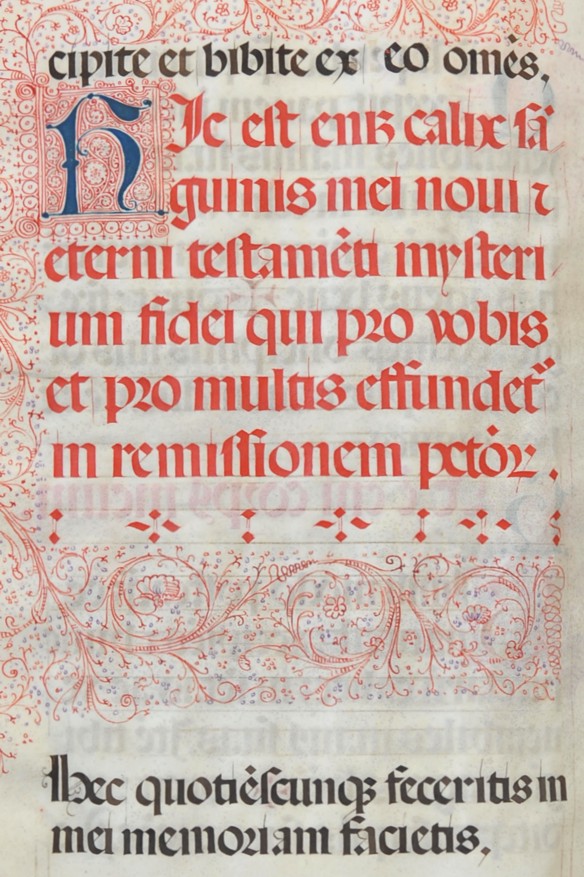 cipite et bibite ex eo om̄es,
Hic est eniꝫ calix sā
guinis mei noui ⁊
eterni testamēti mysteri
um fidei qui pro vobis
et pro multis effundet᷑
in remissionem pctōꝝ.
Hec quotiēscunqꝫ feceritis in
mei memoriam facietis,